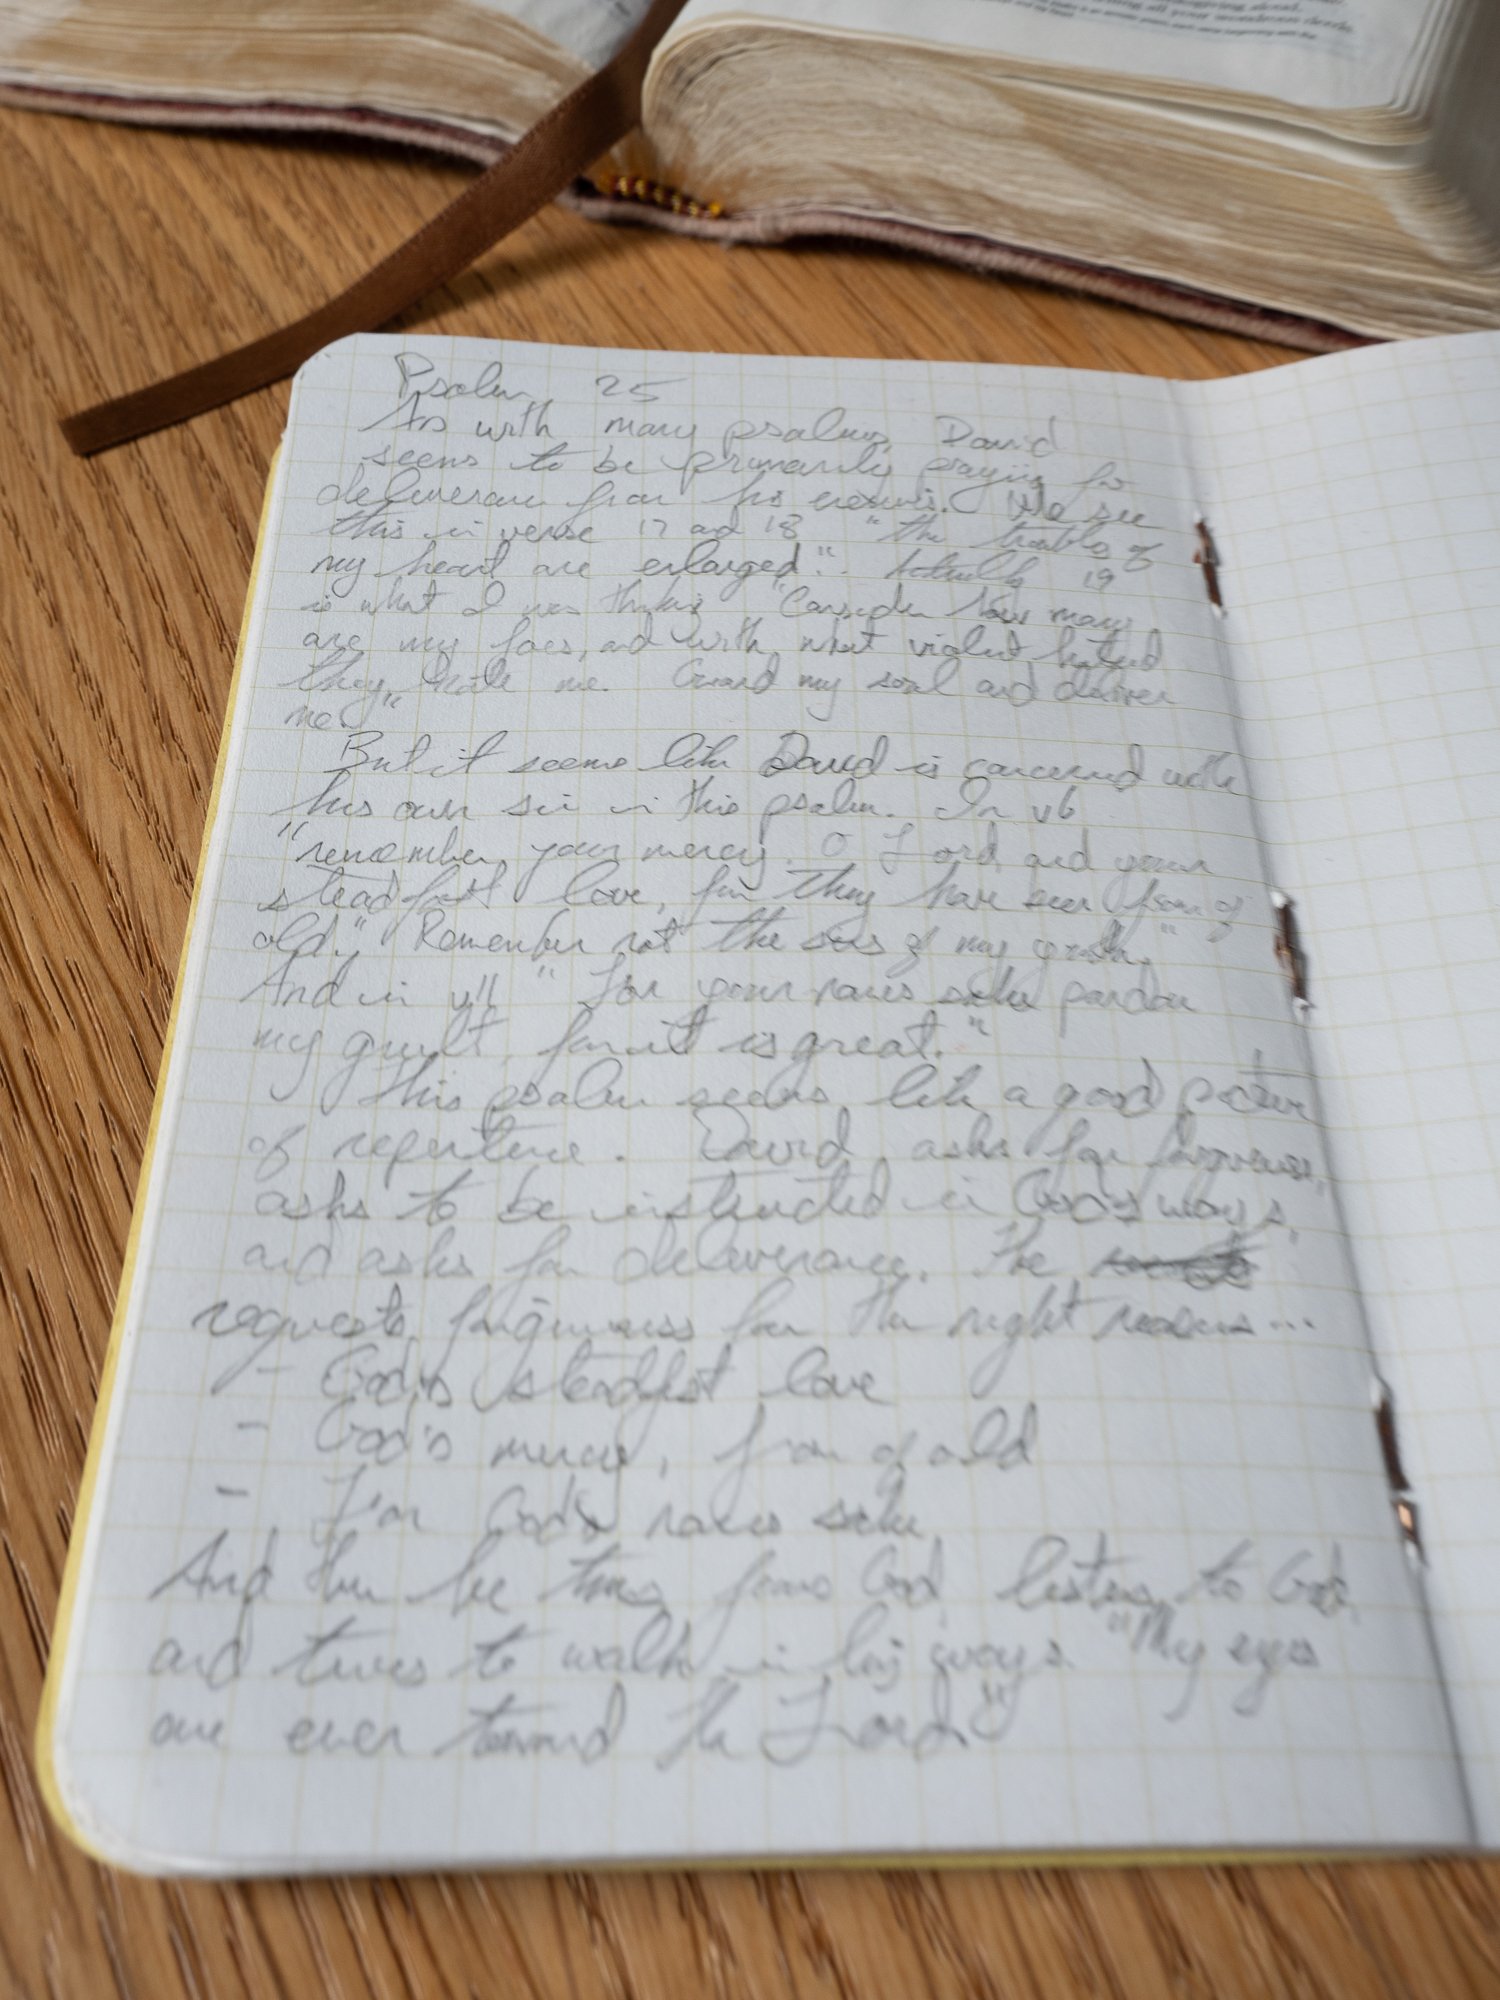 Psalm 25
As with many psalms, David
seems to be primarily praying for
deliverance from his enemies. We see
this in verse 17 and 18 "the troubles of
my heart are enlarged". Actually 19
is what I was thinking "Consider how many
are my foes, and with what violent hatred
they hate me. Guard my soul and deliver
me."
But it seems like David is concerned with
his own sin in this psalm. In v6
"remember your mercy O Lord, and your
steadfast love, for they have been from of
old." Remember not the sins of my youth,"
And in v11 "For your names sake pardon
my guilt, for it is great."
This psalm seems like a good picture
of repentence. David asks for forgiveness,
asks to be instructed in God's ways,
and asks for deliverance. He
requests forgiveness for the right reasons...
- God's steadfast love
- God's mercy, from of old
- For God's names sake
And then he turns God, listens to God,
and turns to walk in his ways. "My eyes
are ever toward the Lord"